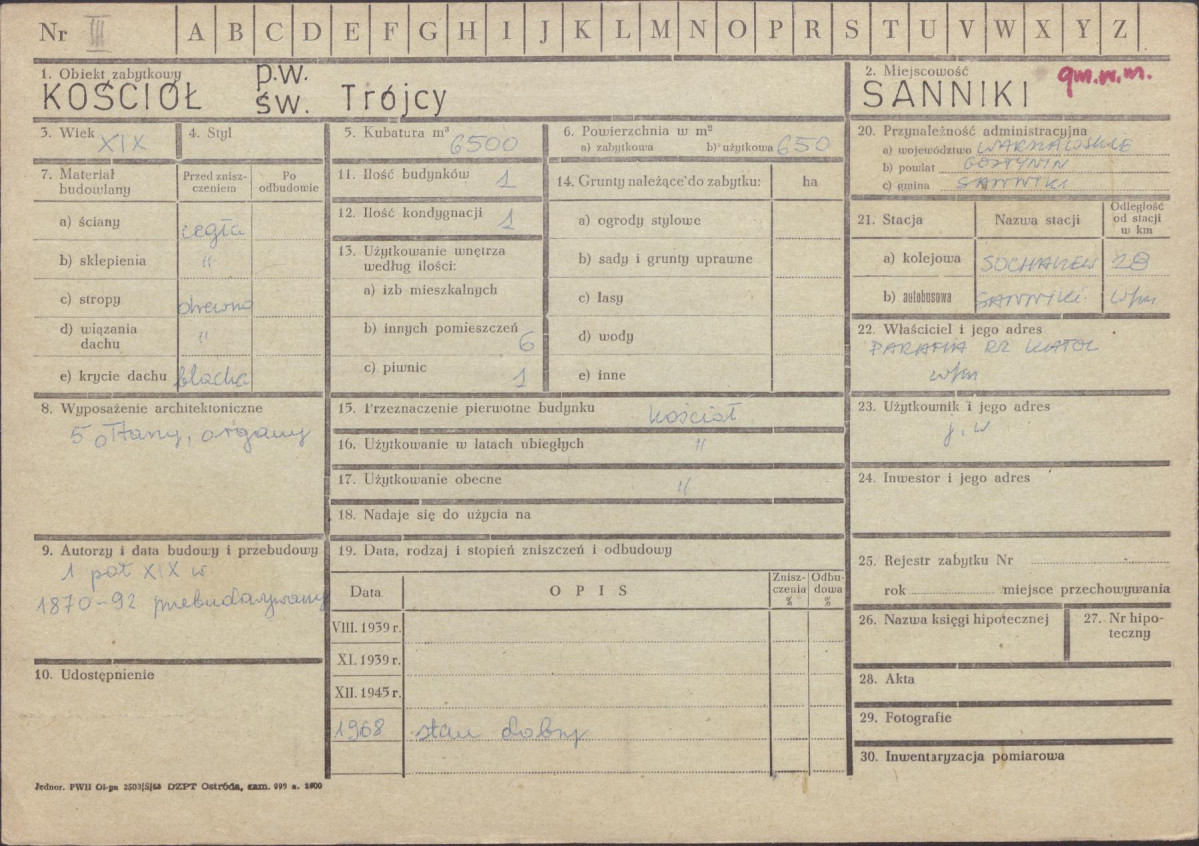 Nr III A B C D E F G H I J K L M N O P R S T U V W X Y Z
1. Obiekt zabytkowy
KOŚCIÓŁ p.w. św. Trójcy
2. Miejscowość
SANNIKI gm.w.m.
3. Wiek XIX
4. Styl
5. Kubatura m³ 6500
6. Powierzchnia w m²
a) zabytkowa b) użytkowa 650
7. Materiał budowlany
Przed zniszczeniem
Po odbudowie
a) ściany cegła
b) sklepienia "
c) stropy drewno
d) wiązania dachu "
e) krycie dachu blacha
8. Wyposażenie architektoniczne
5 ołtarzy, organy
9. Autorzy i data budowy i przebudowy
1 poł XIX w
1870-92 przebudowywany
10. Udostępnienie
11. Ilość budynków 1
12. Ilość kondygnacji 1
13. Użytkowanie wnętrza
według ilości:
a) izb mieszkalnych
b) innych pomieszczeń 6
c) piwnic 1
14. Grunty należące do zabytku: ha
a) ogrody stylowe
b) sady i grunty uprawne
c) lasy
d) wody
e) inne
15. Przeznaczenie pierwotne budynku kościół
16. Użytkowanie w latach ubiegłych "
17. Użytkowanie obecne "
18. Nadaje się do użycia na
19. Data, rodzaj i stopień zniszczeń i odbudowy
Data OPIS Zniszczenia % Odbudowa %
VIII. 1939 r.
XI. 1939 r.
XII. 1945 r.
1968 stan dobry
20. Przynależność administracyjna
a) województwo WARSZAWSKIE
b) powiat GOSTYNIN
c) gmina SANNIKI
21. Stacja Nazwa stacji Odległość od stacji w km
a) kolejowa SOCHACZEW 28
b) autobusowa SANNIKI w/m
22. Właściciel i jego adres
PARAFIA RZ KATOL
w/m
23. Użytkownik i jego adres
j. w
24. Inwestor i jego adres
25. Rejestr zabytku Nr
rok miejsce przechowywania
26. Nazwa księgi hipotecznej
27. Nr hipoteczny
28. Akta
29. Fotografie
30. Inwentaryzacja pomiarowa
Jednor. PWH Ol-pn 2503/S/68 DZPT Ostróda, zam. 999 n. 1000